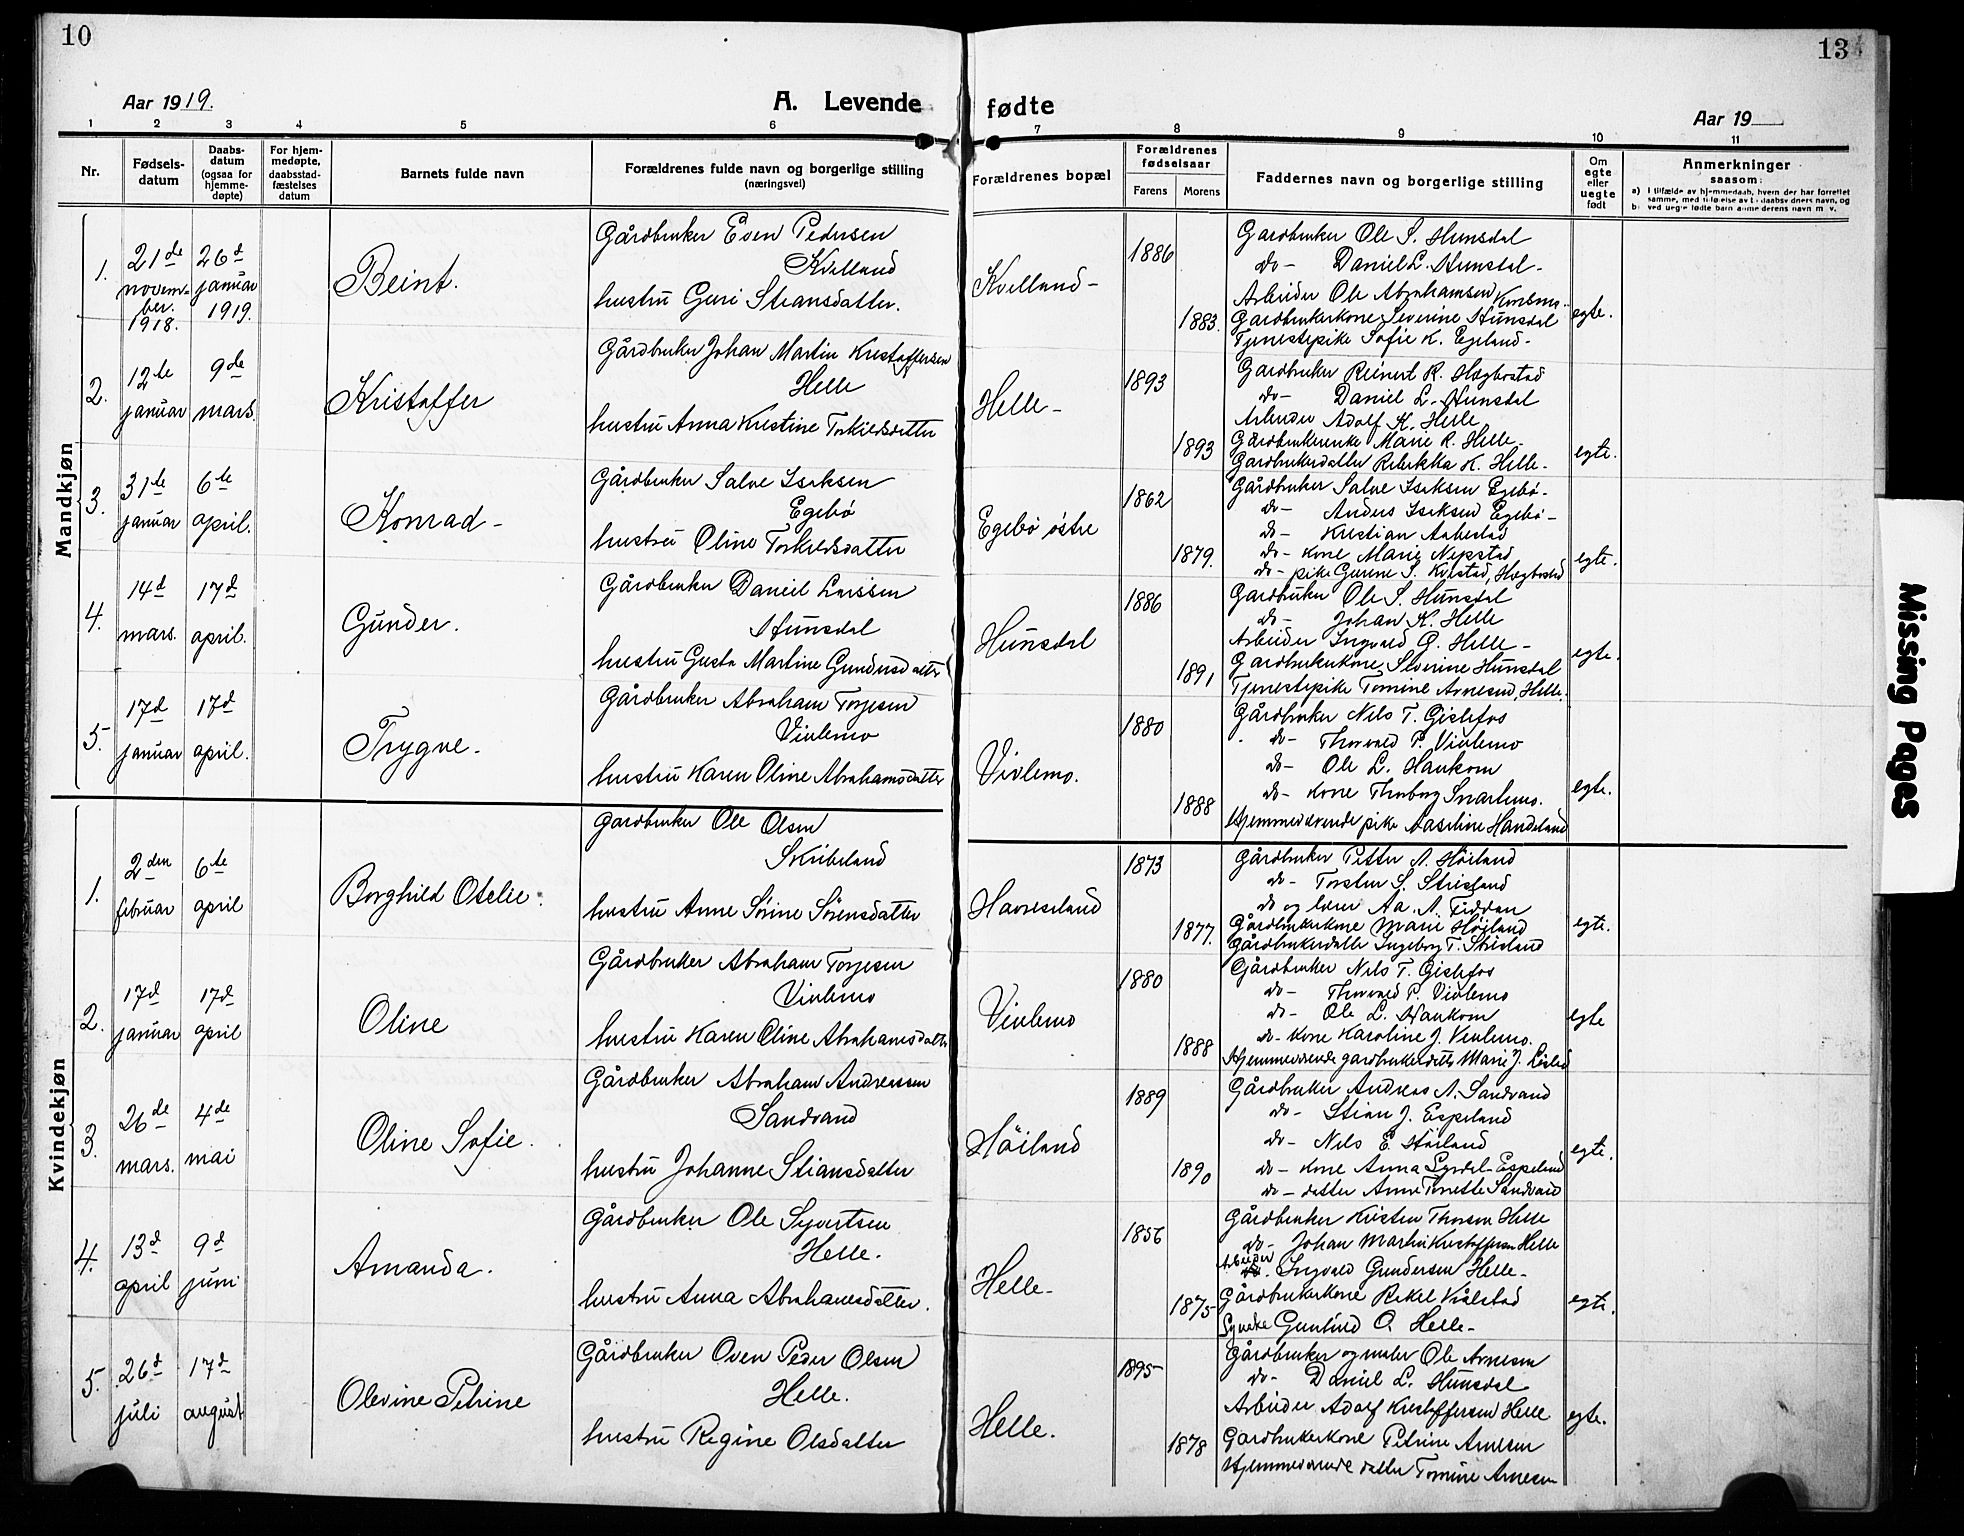 10
13
Aar 1919.
A. Levende fødte
Aar 19
1 2 3 4 5 6 7 8 9 10 11
Nr.
Fødsels-
datum
Daabs-
datum
(ogsaa for
hjemme-
døpte)
For hjem-
medøpte,
daabsstad-
fæstelses
datum
Barnets fulde navn
Forældrenes fulde navn og borgerlige stilling
(næringsvei)
Forældrenes bopæl
Forældrenes
fødselsaar
Farens
Morens
Faddernes navn og borgerlige stilling
Om
egte
eller
uegte
født
Anmerkninger
saasom:
a) I tilfælde av hjemmedaab, hvem der har forrettet
samme, med tilføielse av daabsvidners navn, og
b) ved uegte fødte barn anmelderens navn m. v.
Mandkjøn
1.
21de
novem-
ber.
1918.
26d
januar
1919.
Beint.
Gårdbruker Even Pedersen
Kvelland
hustru Guri Stiansdatter.
Kvelland-
1886
1883.
Gardbruker Ole S. Hunsdal
do- Daniel L. Hunsdal-
Arbeider Ole Abrahamsen
Gardbrukerkone Severine Hunsdal
Tjenestepike Sofie K. Egeland-
egte.
2.
12te
januar
9de
mars.
Kristoffer
Gårdbruker Johan Martin Kristoffersen
Helle
hustru Anna Kristine Torkildsdatter
Helle-
1893
1893
Gardbruker Reinert R. Hægbostad
do- Daniel L. Hunsdal
Arbeider Adolf K. Helle
Gårdbrukerenke Marie R. Helle-
Gardbrukerdatter Rebekka K. Helle-
egte.
3.
31te
januar
6te
april.
Konrad-
Gårdbruker Salve Isaksen
Egebø
hustru Oline Torkildsdatter
Egebø østre
1862
1879.
Gårdbruker Salve Isaksen Egebø-
do- Anders Isaksen Egebø-
do- Kristian Aabestad
do- kone Marie Nepstad
do- pike Gunne S. Kvestad, Hægbostad
egte.
4.
14d
mars.
17d
april.
Gunder.
Gårdbruker Daniel Larssen
Hunsdal
hustru Gusta Martine Gundersdatter
Hunsdal
1886
1891
Gardbruker Ole S. Hunsdal
do- Johan K. Helle
Arbeider Ingvald G. Helle-
Gardbrukerkone Severine Hunsdal
Tjenestepike Tomine Arnesen, Helle.
egte.
5.
17d
januar
17d
april.
Trygve-
Gårdbruker Abraham Torjesen
Vivlemo
hustru Karen Oline Abrahamsdatter
Vivlemo.
1880
1888
Gårdbruker Nils T. Gislefos
do- Thorvald P. Vivlemo
do- Ole L. Haukom
do- kone Thorborg Snartemo.
Hjemmeværende pike Aaseline Handeland
egte.
Kvindekjøn
1.
2den
februar
6te
april
Borghild Otelie.
Gardbruker Ole Olsen
Skibeland
hustru Anne Sørine Sørensdatter
Havreseland
1873
1877.
Gårdbruker Petter N. Høiland
do- Torsten S. Strisland
do og lærer Aa. N. Fiddan
Gårdbrukerkone Marie Høiland
Gårdbrukerdatter Ingeborg T. Strisland
egte.
2.
17d
januar
17d
april
Oline
Gårdbruker Abraham Torjesen
Vivlemo
hustru Karen Oline Abrahamsdatter
Vivlemo
1880
1888
Gårdbruker Nils T. Gislefos
do- Thorvald P. Vivlemo
do- Ole L. Haukom
do- kone Karoline J. Vivlemo.
Hjemmeværende gardbrukerdatter Marie J.
egte
3.
26de
mars.
4de
mai
Oline Sofie.
Gårdbruker Abraham Andreassen
Sandvand
hustru Johanne Stiansdatter
Høiland
1889
1890
Gårdbruker Andreas A. Sandvand
do- Stian J. Espeland
do- Nils E. Høiland
do- kone Anna Lyrdal-Espeland
do- datter Anne Tonette Sandvand
egte.
4.
13d
april
9d
juni
Amanda.
Gårdbruker Ole Syvertsen
Helle.
hustru Anna Abrahamsdatter.
Helle-
1856
1875
Gårdbruker Kristen Thorsen Helle
do- Johan Martin Kristoffersen Helle
Arbeider Ingvald Gundersen Helle-
Gårdbrukerkone Rakel Kvålstad
Gunhild O. Helle-
egte.
5.
26d
juli
17d
august
Olevine Petrine
Gårdbruker Oven Peder Olsen
Helle.
hustru Regine Olsdatter
Helle.
1895
1878
Gårdbruker og maler Ole Arnesen
do- Daniel L. Hunsdal
Arbeider Adolf Kristoffersen Helle
Gardbrukerkone Petrine Arnesen
Hjemmeværende datter Tomine Arnesen
egte.
Missing Pages